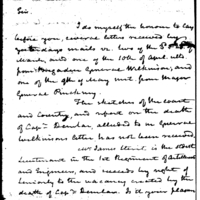 Sir,
I do myself the honour to lay
before you, several letters received by
yesterdays mails viz. two of the 3d
March, and one of the 10th of April ulto
from Brigadier General Wilkinson, and
one of the 9th of May inst from Major
General Pinckney.
The sketches of the coast
and Country, and report on the death
of Capn Demlar, alluded to in General
Wilkinsons letter has not been received
James Sterrett is the oldest
Lieutenant in the 1st Regiment of Artillerists
and Engineers, and succeeds by right of
seniority to the vacancy created by the
death of Capn Demlar. Is it your pleasure